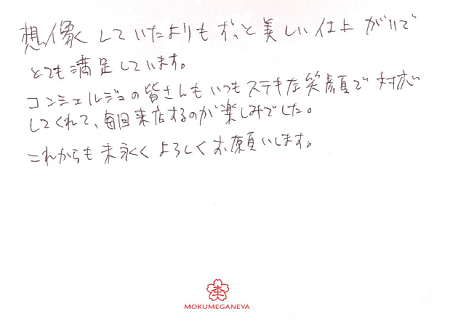 想像していたよりもずっと美しい仕上がりで
とても満足しています。
コンシェルジュの皆さんもいつもステキな笑顔で対応
してくれて、毎回来店するのが楽しみでした。
これからも末永くよろしくお願いします。
MOKUMEGANEYA